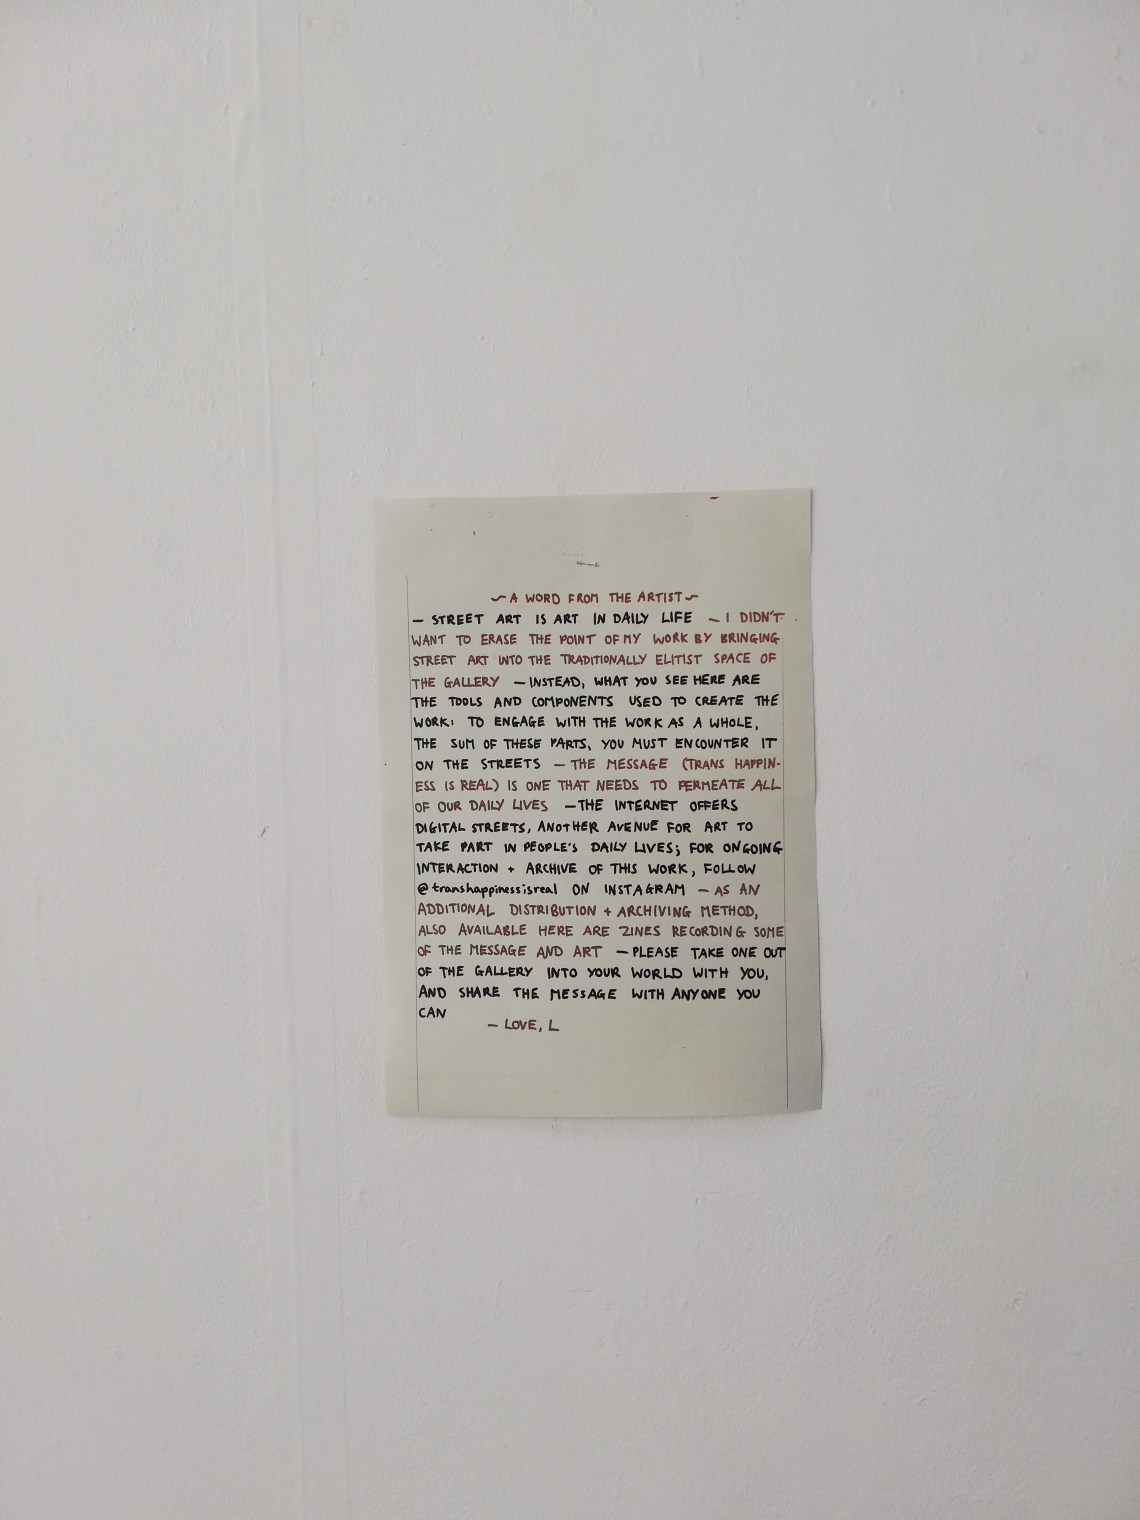 ~ A WORD FROM THE ARTIST ~
— STREET ART IS ART IN DAILY LIFE — I DIDN'T
WANT TO ERASE THE POINT OF MY WORK BY BRINGING
STREET ART INTO THE TRADITIONALLY ELITIST SPACE OF
THE GALLERY — INSTEAD, WHAT YOU SEE HERE ARE
THE TOOLS AND COMPONENTS USED TO CREATE THE
WORK: TO ENGAGE WITH THE WORK AS A WHOLE,
THE SUM OF THESE PARTS, YOU MUST ENCOUNTER IT
ON THE STREETS — THE MESSAGE (TRANS HAPPIN-
ESS IS REAL) IS ONE THAT NEEDS TO PERMEATE ALL
OF OUR DAILY LIVES — THE INTERNET OFFERS
DIGITAL STREETS, ANOTHER AVENUE FOR ART TO
TAKE PART IN PEOPLE'S DAILY LIVES; FOR ONGOING
INTERACTION + ARCHIVE OF THIS WORK, FOLLOW
@transhappinessisreal ON INSTAGRAM — AS AN
ADDITIONAL DISTRIBUTION + ARCHIVING METHOD,
ALSO AVAILABLE HERE ARE ZINES RECORDING SOME
OF THE MESSAGE AND ART — PLEASE TAKE ONE OUT
OF THE GALLERY INTO YOUR WORLD WITH YOU,
AND SHARE THE MESSAGE WITH ANYONE YOU
CAN
— LOVE, L